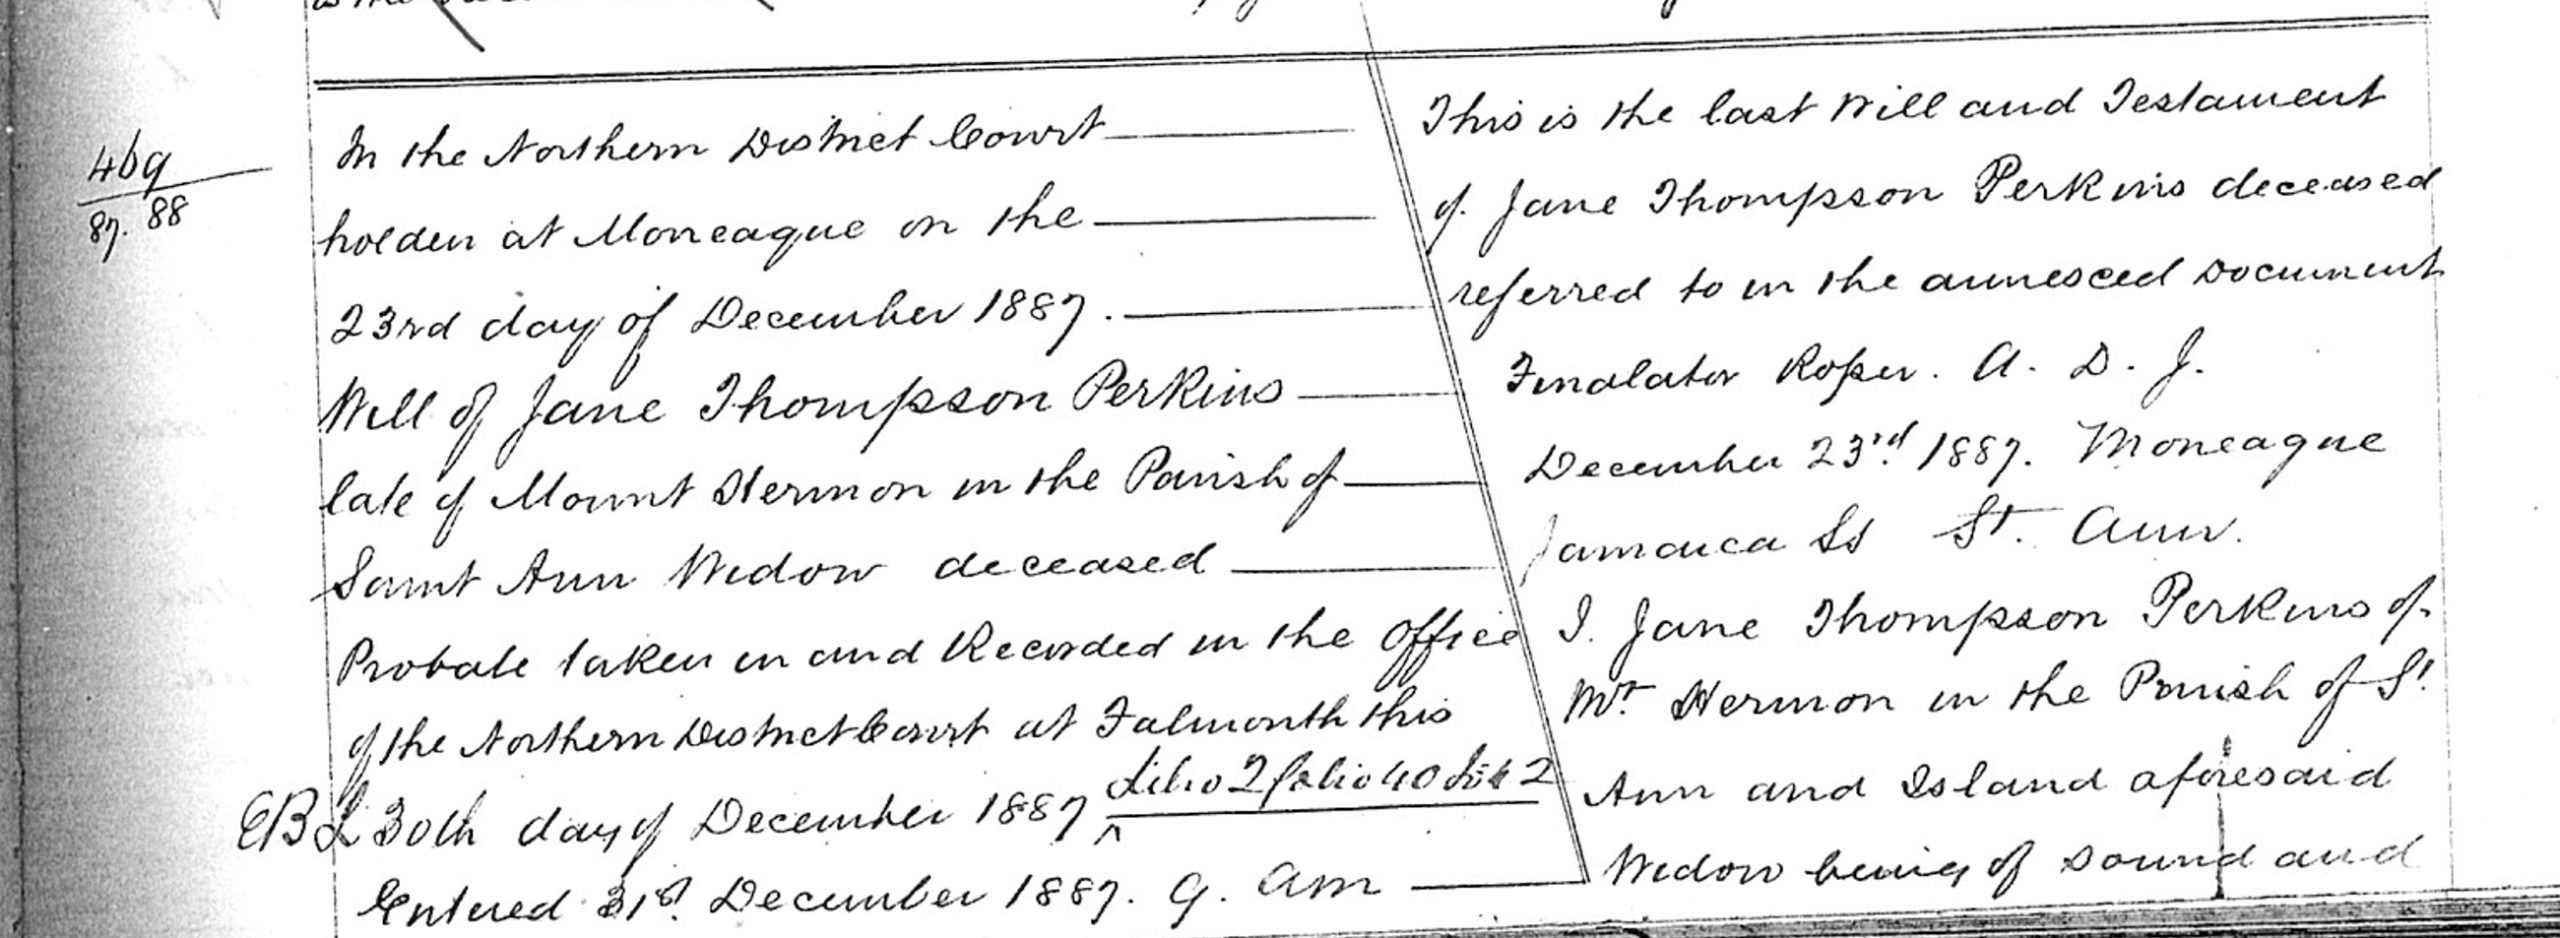 469
87. 88
In the Northern District Court
holden at Moneague on the
23rd day of December 1887.
Will of Jane Thompson Perkins
late of Mount Hermon in the Parish of
Saint Ann Widow deceased
Probate taken in and Recorded in the Office
of the Northern District Court at Falmouth this
Libro 2 folio 40
EBL 30th day of December 1887 ^
Entered 31st. December 1887. 9. am
This is the last Will and Testament
of. Jane Thompson Perkins deceased
referred to in the annexed Document
Roper. A. D. J.
December 23rd. 1887. Moneague
Jamaica Ss St. Ann.
I. Jane Thompson Perkins of
Mt. Hermon in the Parish of St.
Ann and Island aforesaid
Widow being of sound and